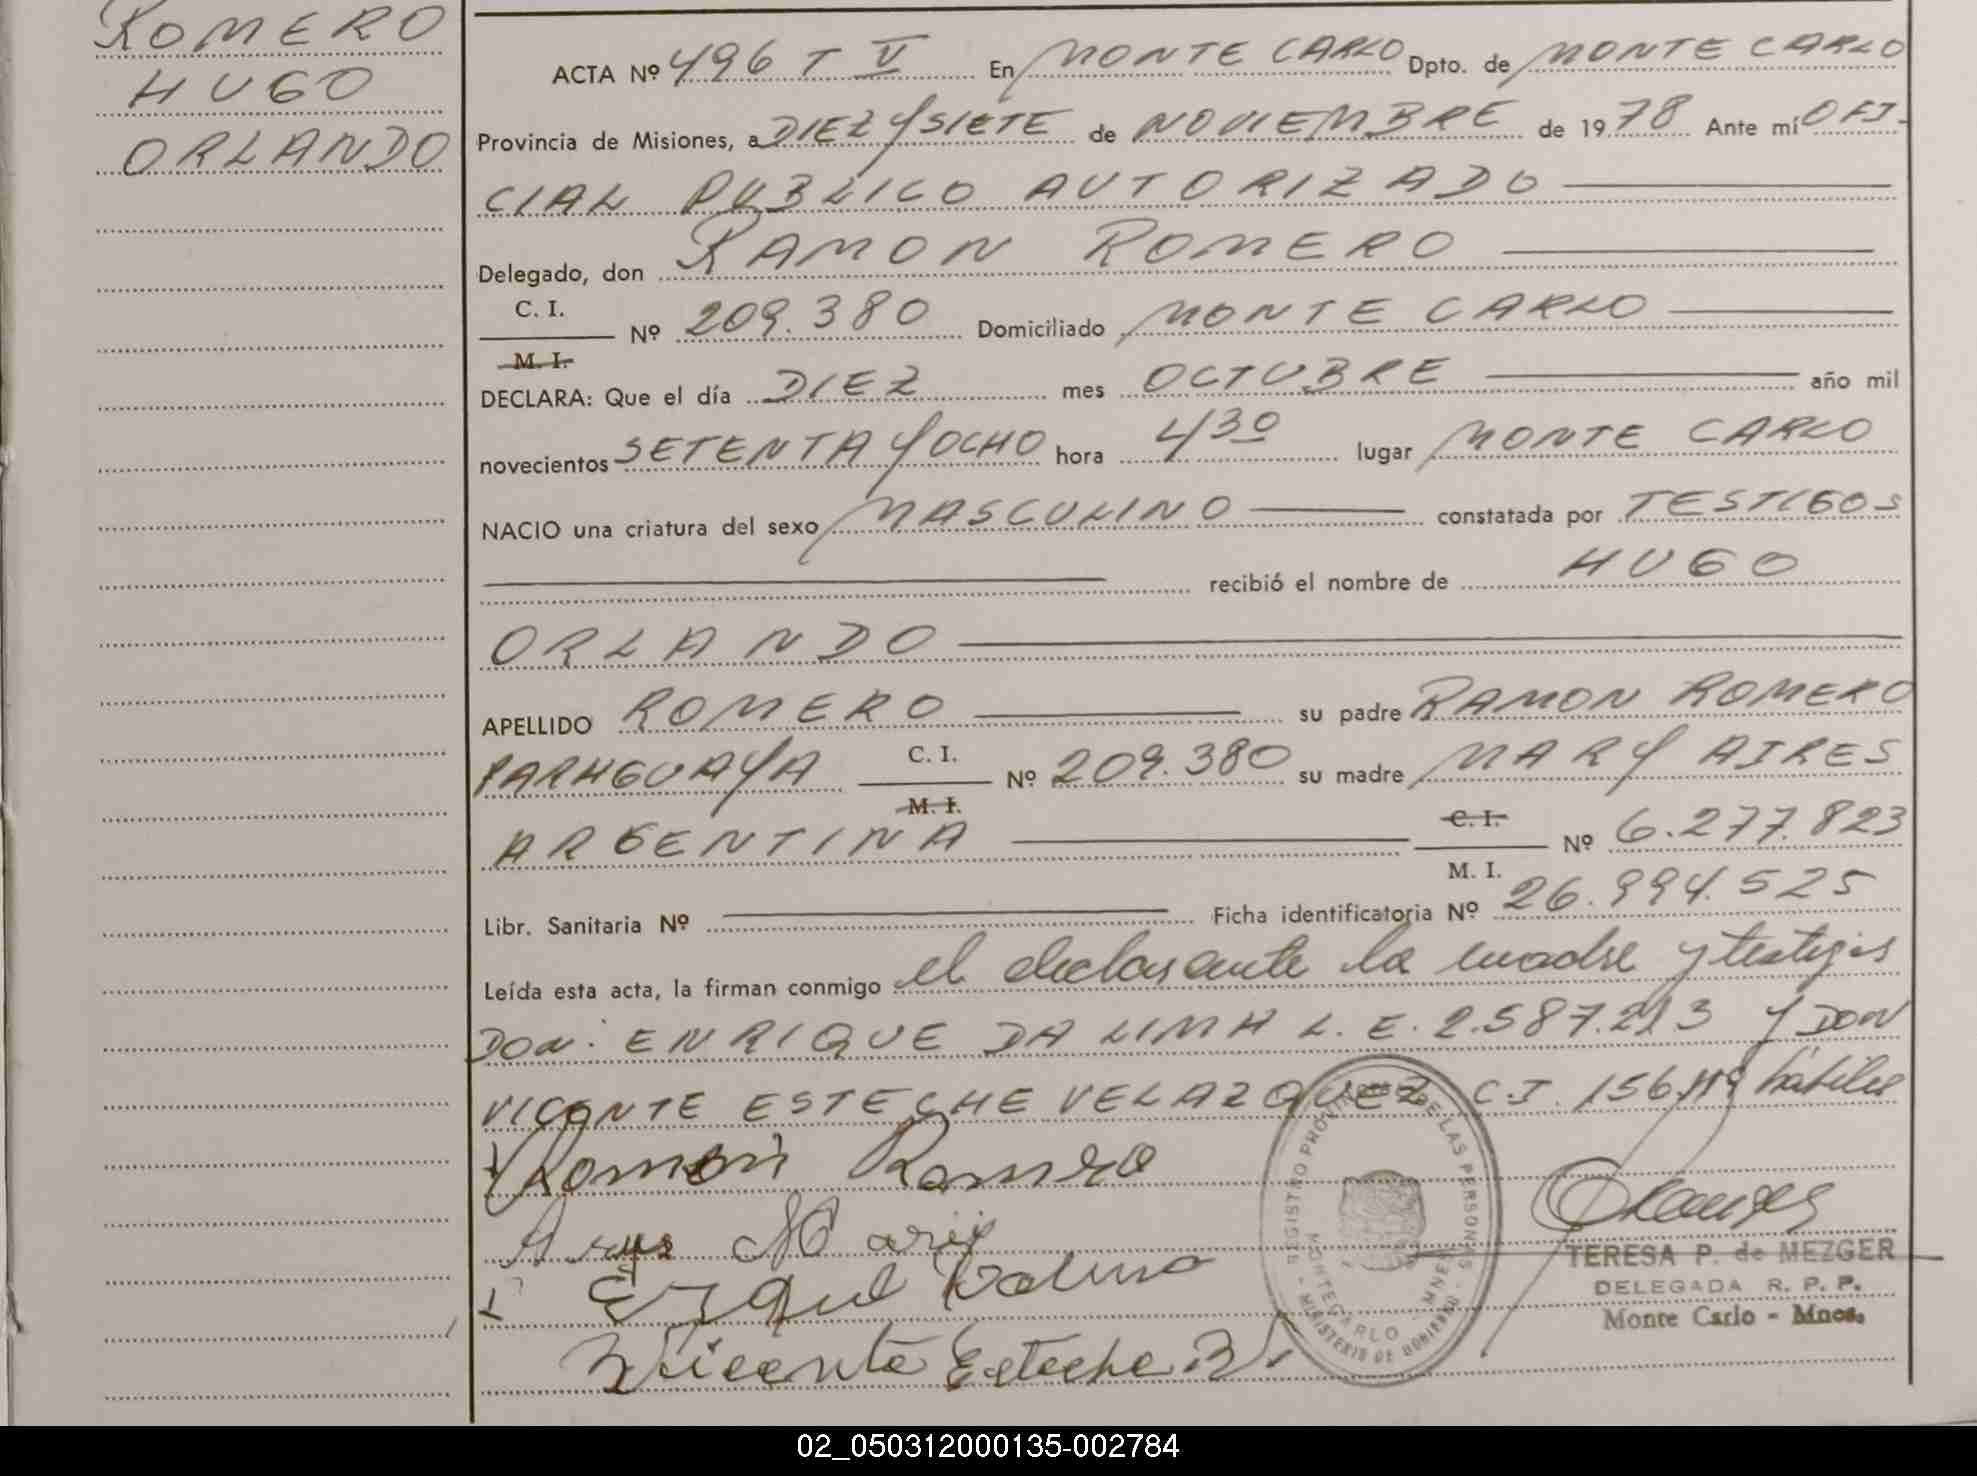 ROMERO
HUGO
ORLANDO
ACTA Nº 496 T V En MONTE CARLO Dpto. de MONTE CARLO
Provincia de Misiones, a DIEZ Y SIETE de NOVIEMBRE de 1978 Ante mí OFI-
CIAL PUBLICO AUTORIZADO
Delegado, don RAMON ROMERO
C. I.
M. I.
Nº 209.380 Domiciliado MONTE CARLO
DECLARA: Que el día DIEZ mes OCTUBRE año mil
novecientos SETENTA Y OCHO hora 4 30 lugar MONTE CARLO
NACIO una criatura del sexo MASCULINO constatada por TESTIGOS
recibió el nombre de HUGO
ORLANDO
APELLIDO ROMERO su padre RAMON ROMERO
PARAGUAYA C. I. M. I. Nº 209.380 su madre MARY AIRES
ARGENTINA C. I. M. I. Nº 6.277.823
Libr. Sanitaria Nº Ficha identificatoria Nº 26.994.525
Leída esta acta, la firman conmigo el declarante la madre y testigos
DON: ENRIQUE DA LIMA L. E. 2.587.213 Y DON
VICENTE ESTECHE VELAZQUEZ C.I. 156.119 hábiles
Ramon Romero
Mary
Vicente Esteche
REGISTRO PROVINCIAL DE LAS PERSONAS
MONTECARLO - MNES
MINISTERIO DE GOBIERNO
TERESA P. de MEZGER
DELEGADA R. P. P.
Monte Carlo - Mnes.
02_050312000135-002784